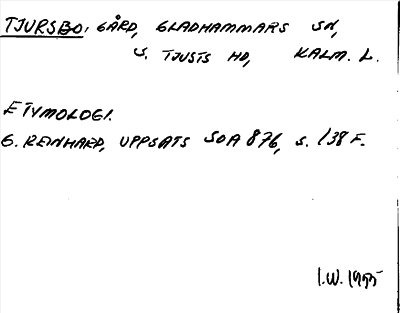 TJURSBO, GÅRD, GLADHAMMARS SN,
S. TJUSTS HD, KALM. L.
ETYMOLOGI.
G. REINHARD, UPPSATS SOA 876, S. 138 F.
I.W. 1955